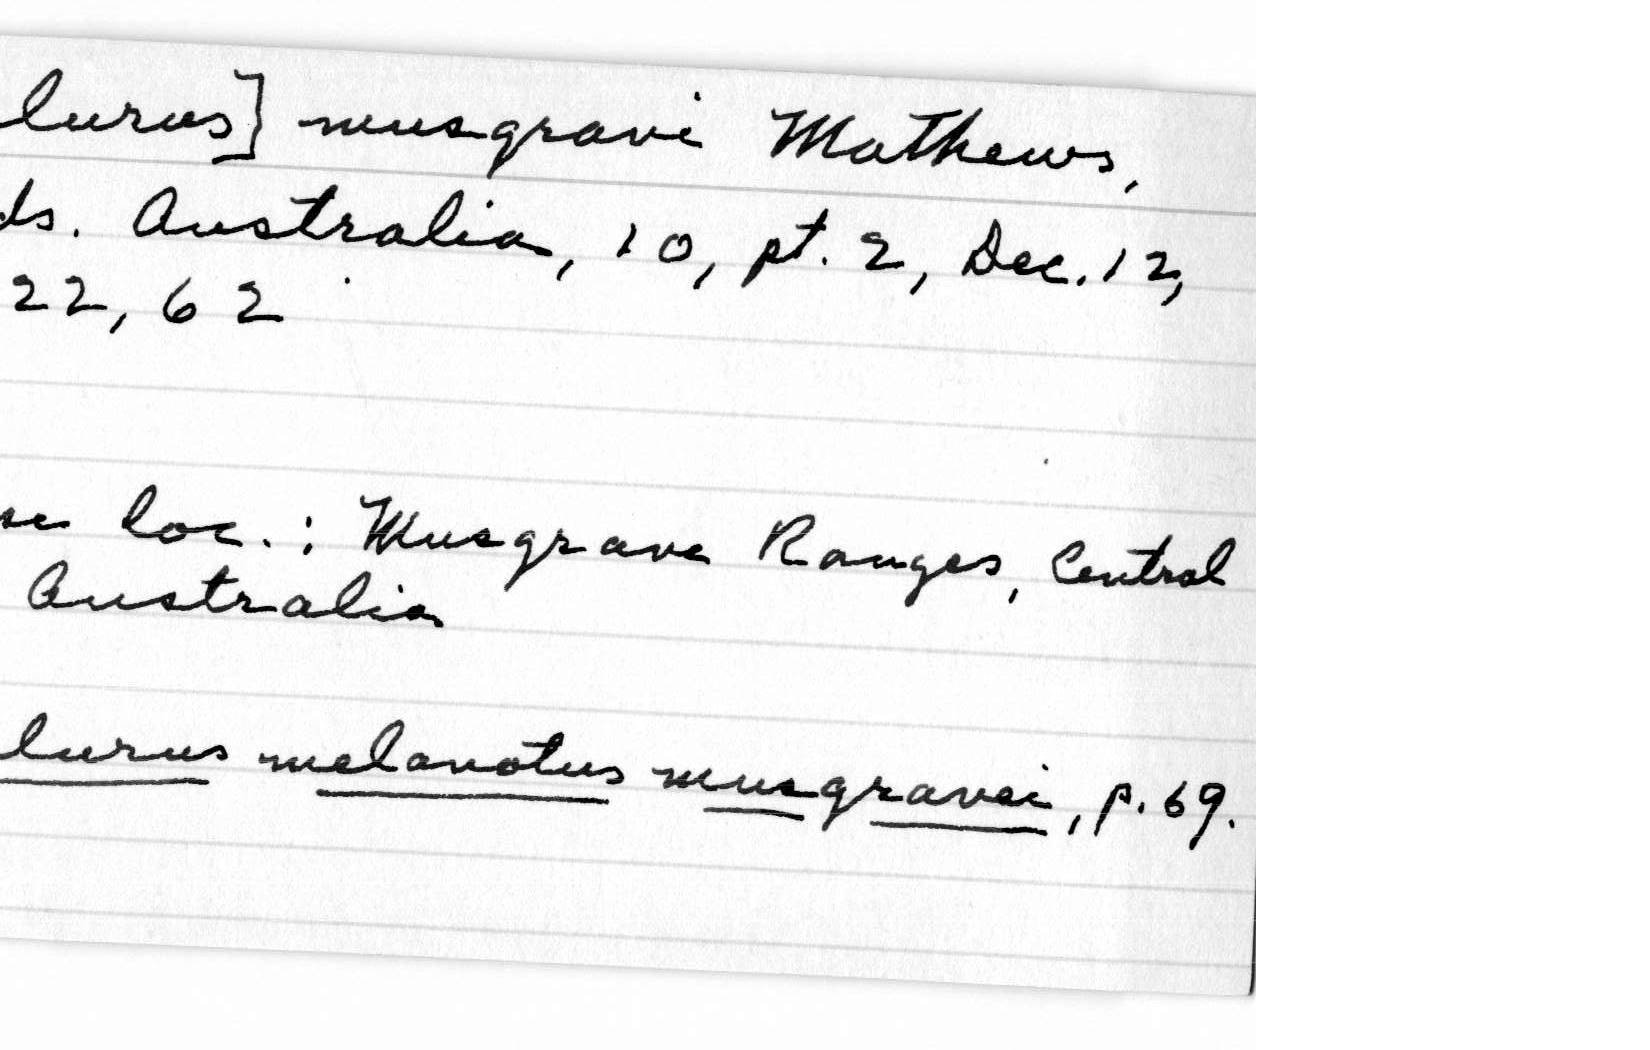 lurus] musgravi Mathews,
ds. Australia, 10, pt. 2, Dec. 12,
22, 62
loc. : Musgrave Ranges, Central
Australia
lurus melanotus musgravei, p. 69.